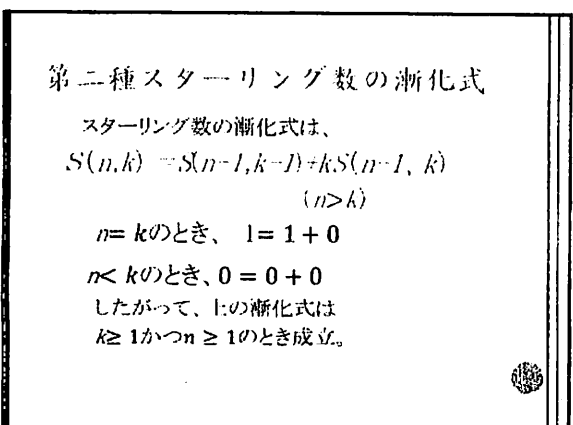 第二種スターリング数の漸化式
スターリング数の漸化式は、
S(n,k) =S(n-1,k-1)+kS(n-1, k)
(n>k)
n= kのとき、 1= 1 + 0
n< kのとき、0 = 0 + 0
したがって、上の漸化式は
k≥ 1かつn ≥ 1のとき成立。